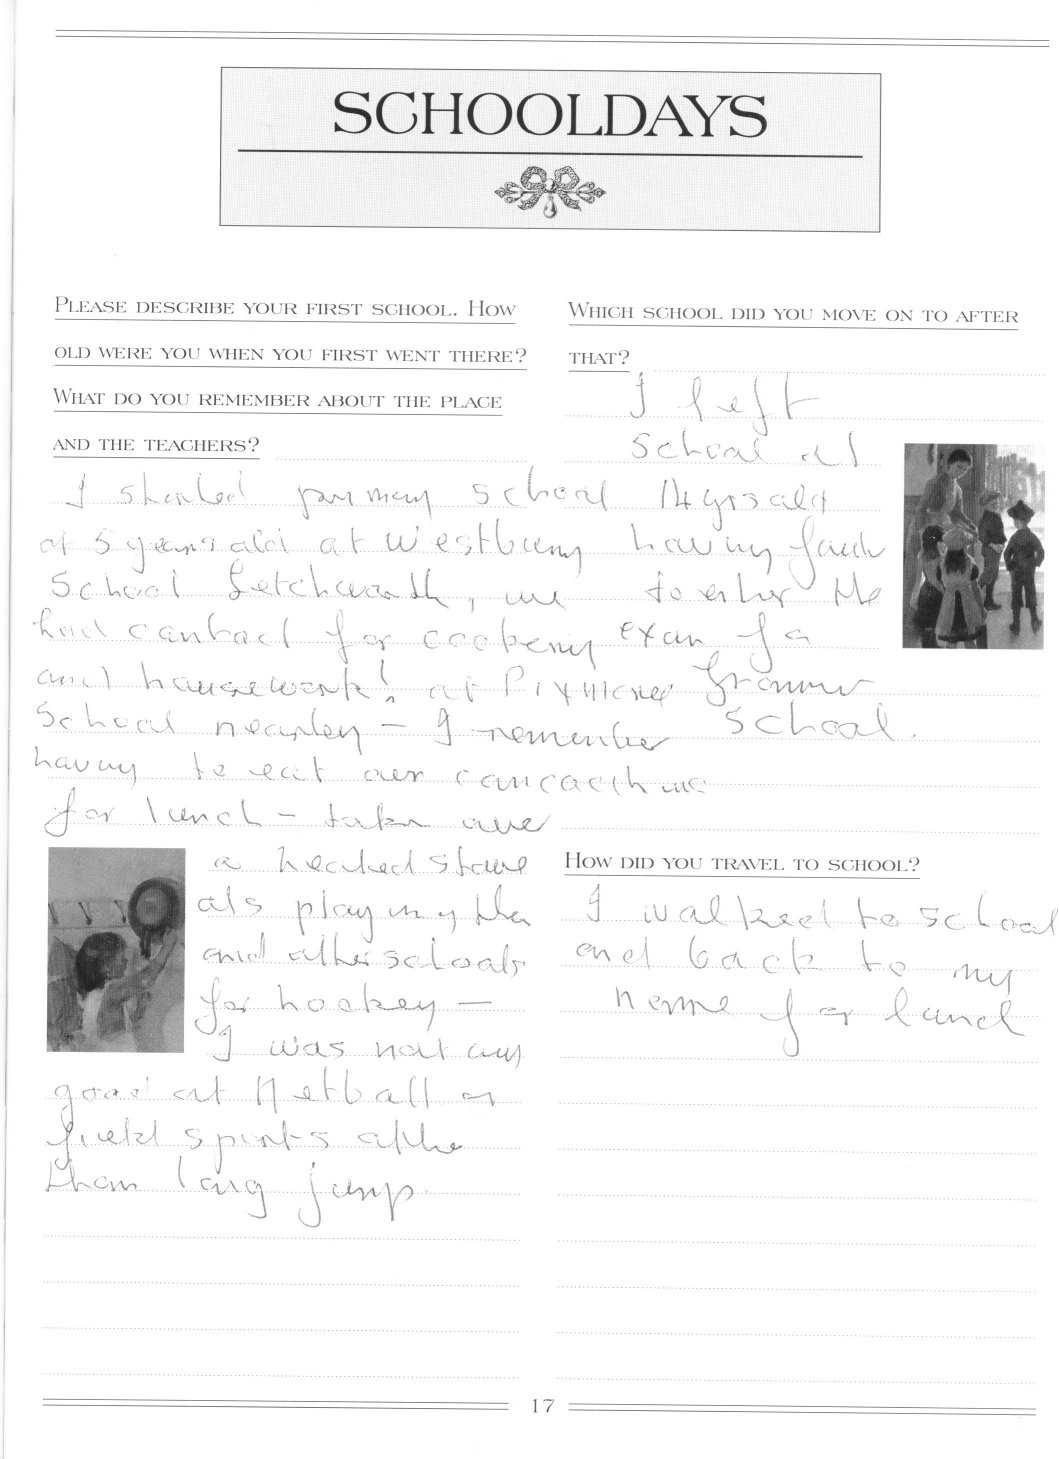 SCHOOLDAYS
PLEASE DESCRIBE YOUR FIRST SCHOOL. HOW
OLD WERE YOU WHEN YOU FIRST WENT THERE?
WHAT DO YOU REMEMBER ABOUT THE PLACE
AND THE TEACHERS?
I started primary school
at 5 years old at Westbury
School Letchworth, we
had contact for cookery
and housework! at Pixmore
School nearby — I remember
having to eat our
for lunch – taken over
a heated stove
als playing other
and other schools
for hockey —
I was not any
good at Netball or
field sports other
than long jump.
WHICH SCHOOL DID YOU MOVE ON TO AFTER
THAT?
I left
school at
14 yrs old
having
to enter the
exam for
Grammer
School.
HOW DID YOU TRAVEL TO SCHOOL?
I walked to school
and back to my
home for lunch
17